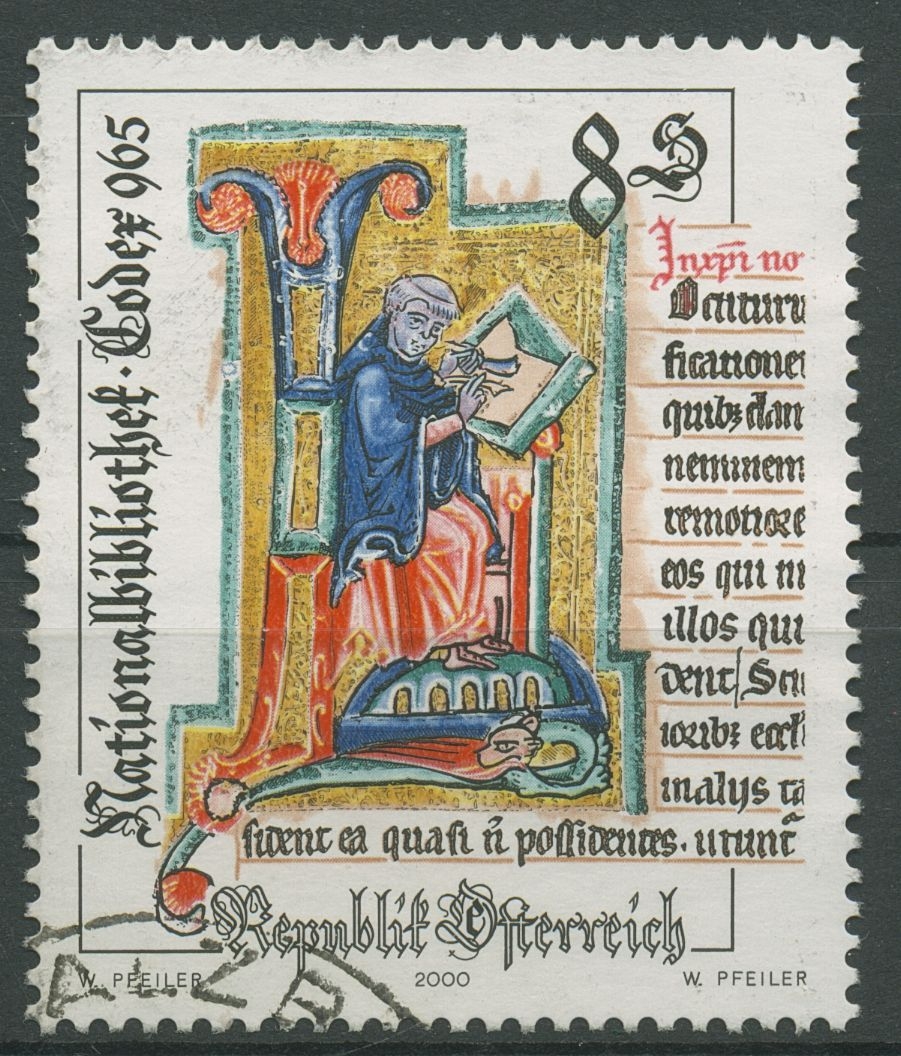 Nationalbibliothek · Codex 965
8 S
In xp̄i no
ficatione
quibꝫ
remotiore
eos qui
illos qui
dent/
ioribꝫ eccl
inaliis ta
sident ea quasi n̄ possidentes. utunt
Republik Österreich
W. PFEILER 2000 W. PFEILER